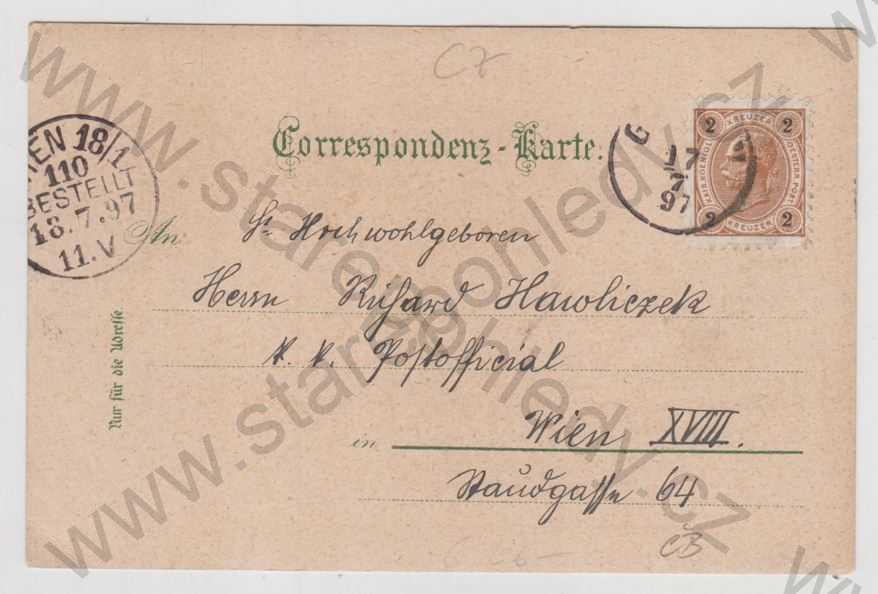 C7
Correspondenz-Karte.
2 KREUZER 2
KAIS. KOENIGL. OESTERR. POST.
2 KREUZER 2
G
17
7
97
WIEN 18/1
110
BESTELLT
18.7.97
11.V
An
Sr Hochwohlgeboren
Herrn Richard Hawliczek
k. k. Postofficial
in Wien XVIII.
Staudgasse 64
Nur für die Adresse.
ČB
www.starepohledy.cz
www.starepohledy.cz